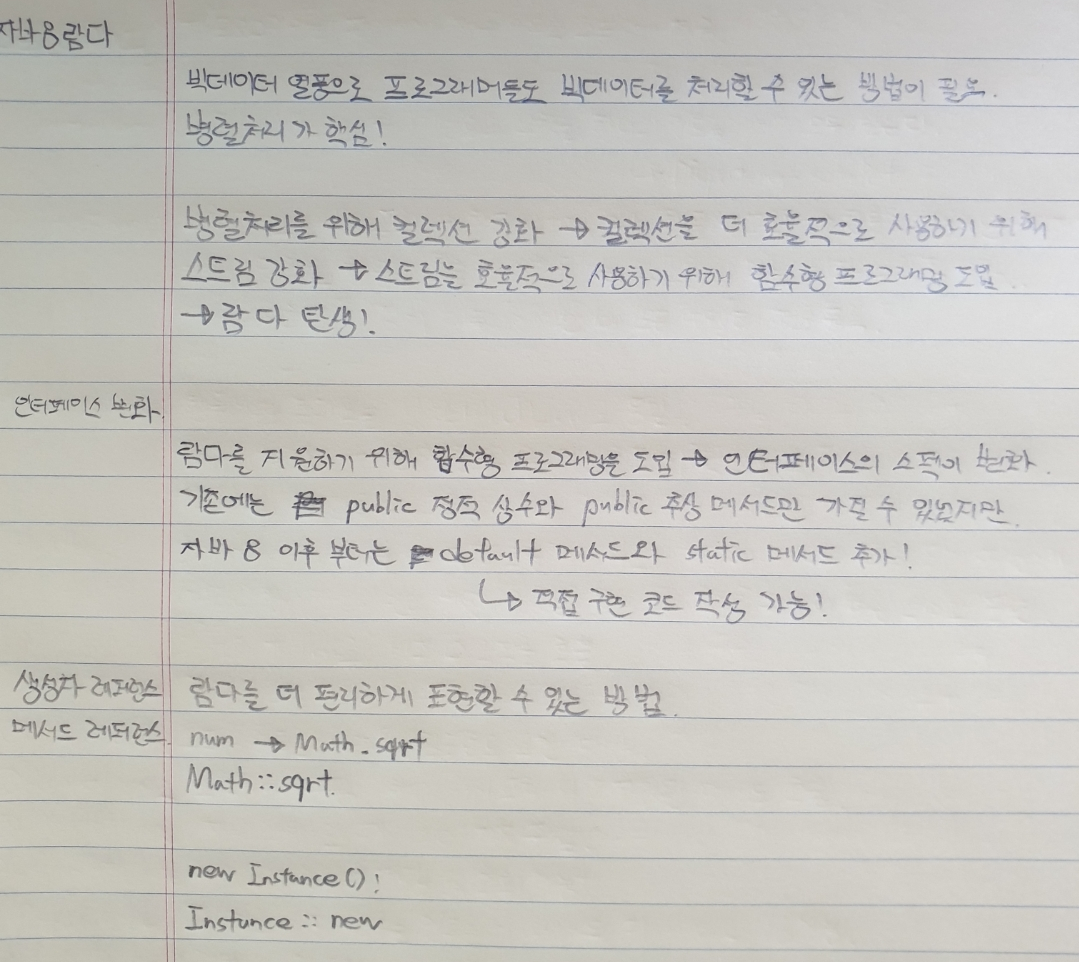 자바8람다
빅데이터 열풍으로 프로그래머들도 빅데이터를 처리할 수 있는 방법이 필요.
병렬처리가 핵심!
병렬처리를 위해 컬렉션 강화 → 컬렉션을 더 효율적으로 사용하기 위해
스트림 강화 → 스트림는 효율적으로 사용하기 위해 함수형 프로그래밍 도입
→ 람다 탄생!
인터페이스 변화
람다를 지원하기 위해 함수형 프로그래밍을 도입 → 인터페이스의 스펙이 변화.
기존에는 public 정적 상수와 public 추상 메서드만 가질 수 있었지만
자바 8 이후 부터는 default 메서드와 static 메서드 추가!
↳ 직접 구현 코드 작성 가능!
생성자 레퍼런스 람다를 더 편리하게 표현할 수 있는 방법.
메서드 레퍼런스 num → Math.sqrt
Math::sqrt.
new Instance();
Instance::new